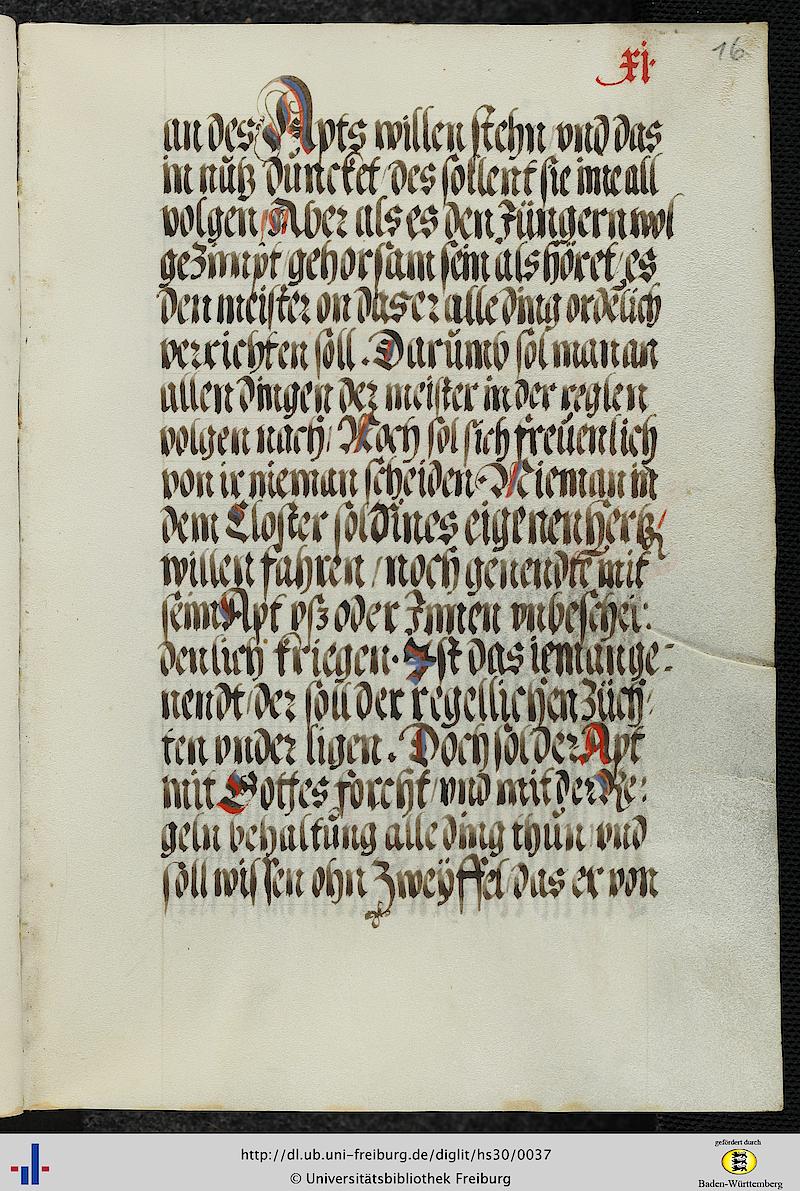 xi·
16
an des Apts willen stehn / vnd das
in nütz duncket / des sollent sie ime all
volgen / Aber als es den Jüngern wol
gezimpt / gehorsam sein als höret / es
den meister on das er alle ding ordēlich
verrichten soll . Darumb sol man an
allen dingen der meister in der reglen
volgen nach / Noch sol sich freüenlich
von ir nieman scheiden · Nieman in
dem Closter sol sines eigenen hertzē /
willen fahren / noch genendte mit
seim Apt vsz oder Jnnen vnbeschei:
denlich kriegen · Ist das ieman ge=
nendt / der soll der regellichen Züch/
ten vnder ligen . Doch sol der Apt
mit Gottes forcht / vnd mit der Re:
geln behaltung alle ding thun / vnd
soll wissen ohn Zweÿffel / das er von
http://dl.ub.uni-freiburg.de/diglit/hs30/0037
© Universitätsbibliothek Freiburg
gefördert durch
Baden-Württemberg